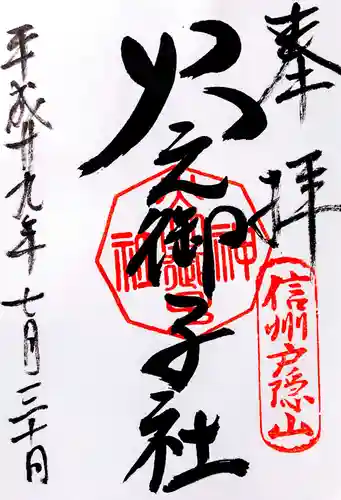 奉拝
信州戸隠山
火之御子社
平成十九年七月三十日